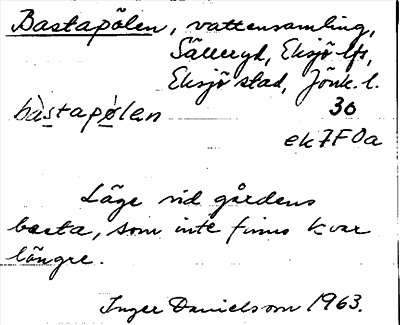 Bastapölen, vattensamling,
Sälleryd, Eksjö lfs,
Eksjö stad, Jönk. l.
bàstapö̀len 30
ek 7F0a
Läge vid gårdens
basta, som inte finns kvar
längre.
Inger Danielsson 1963.